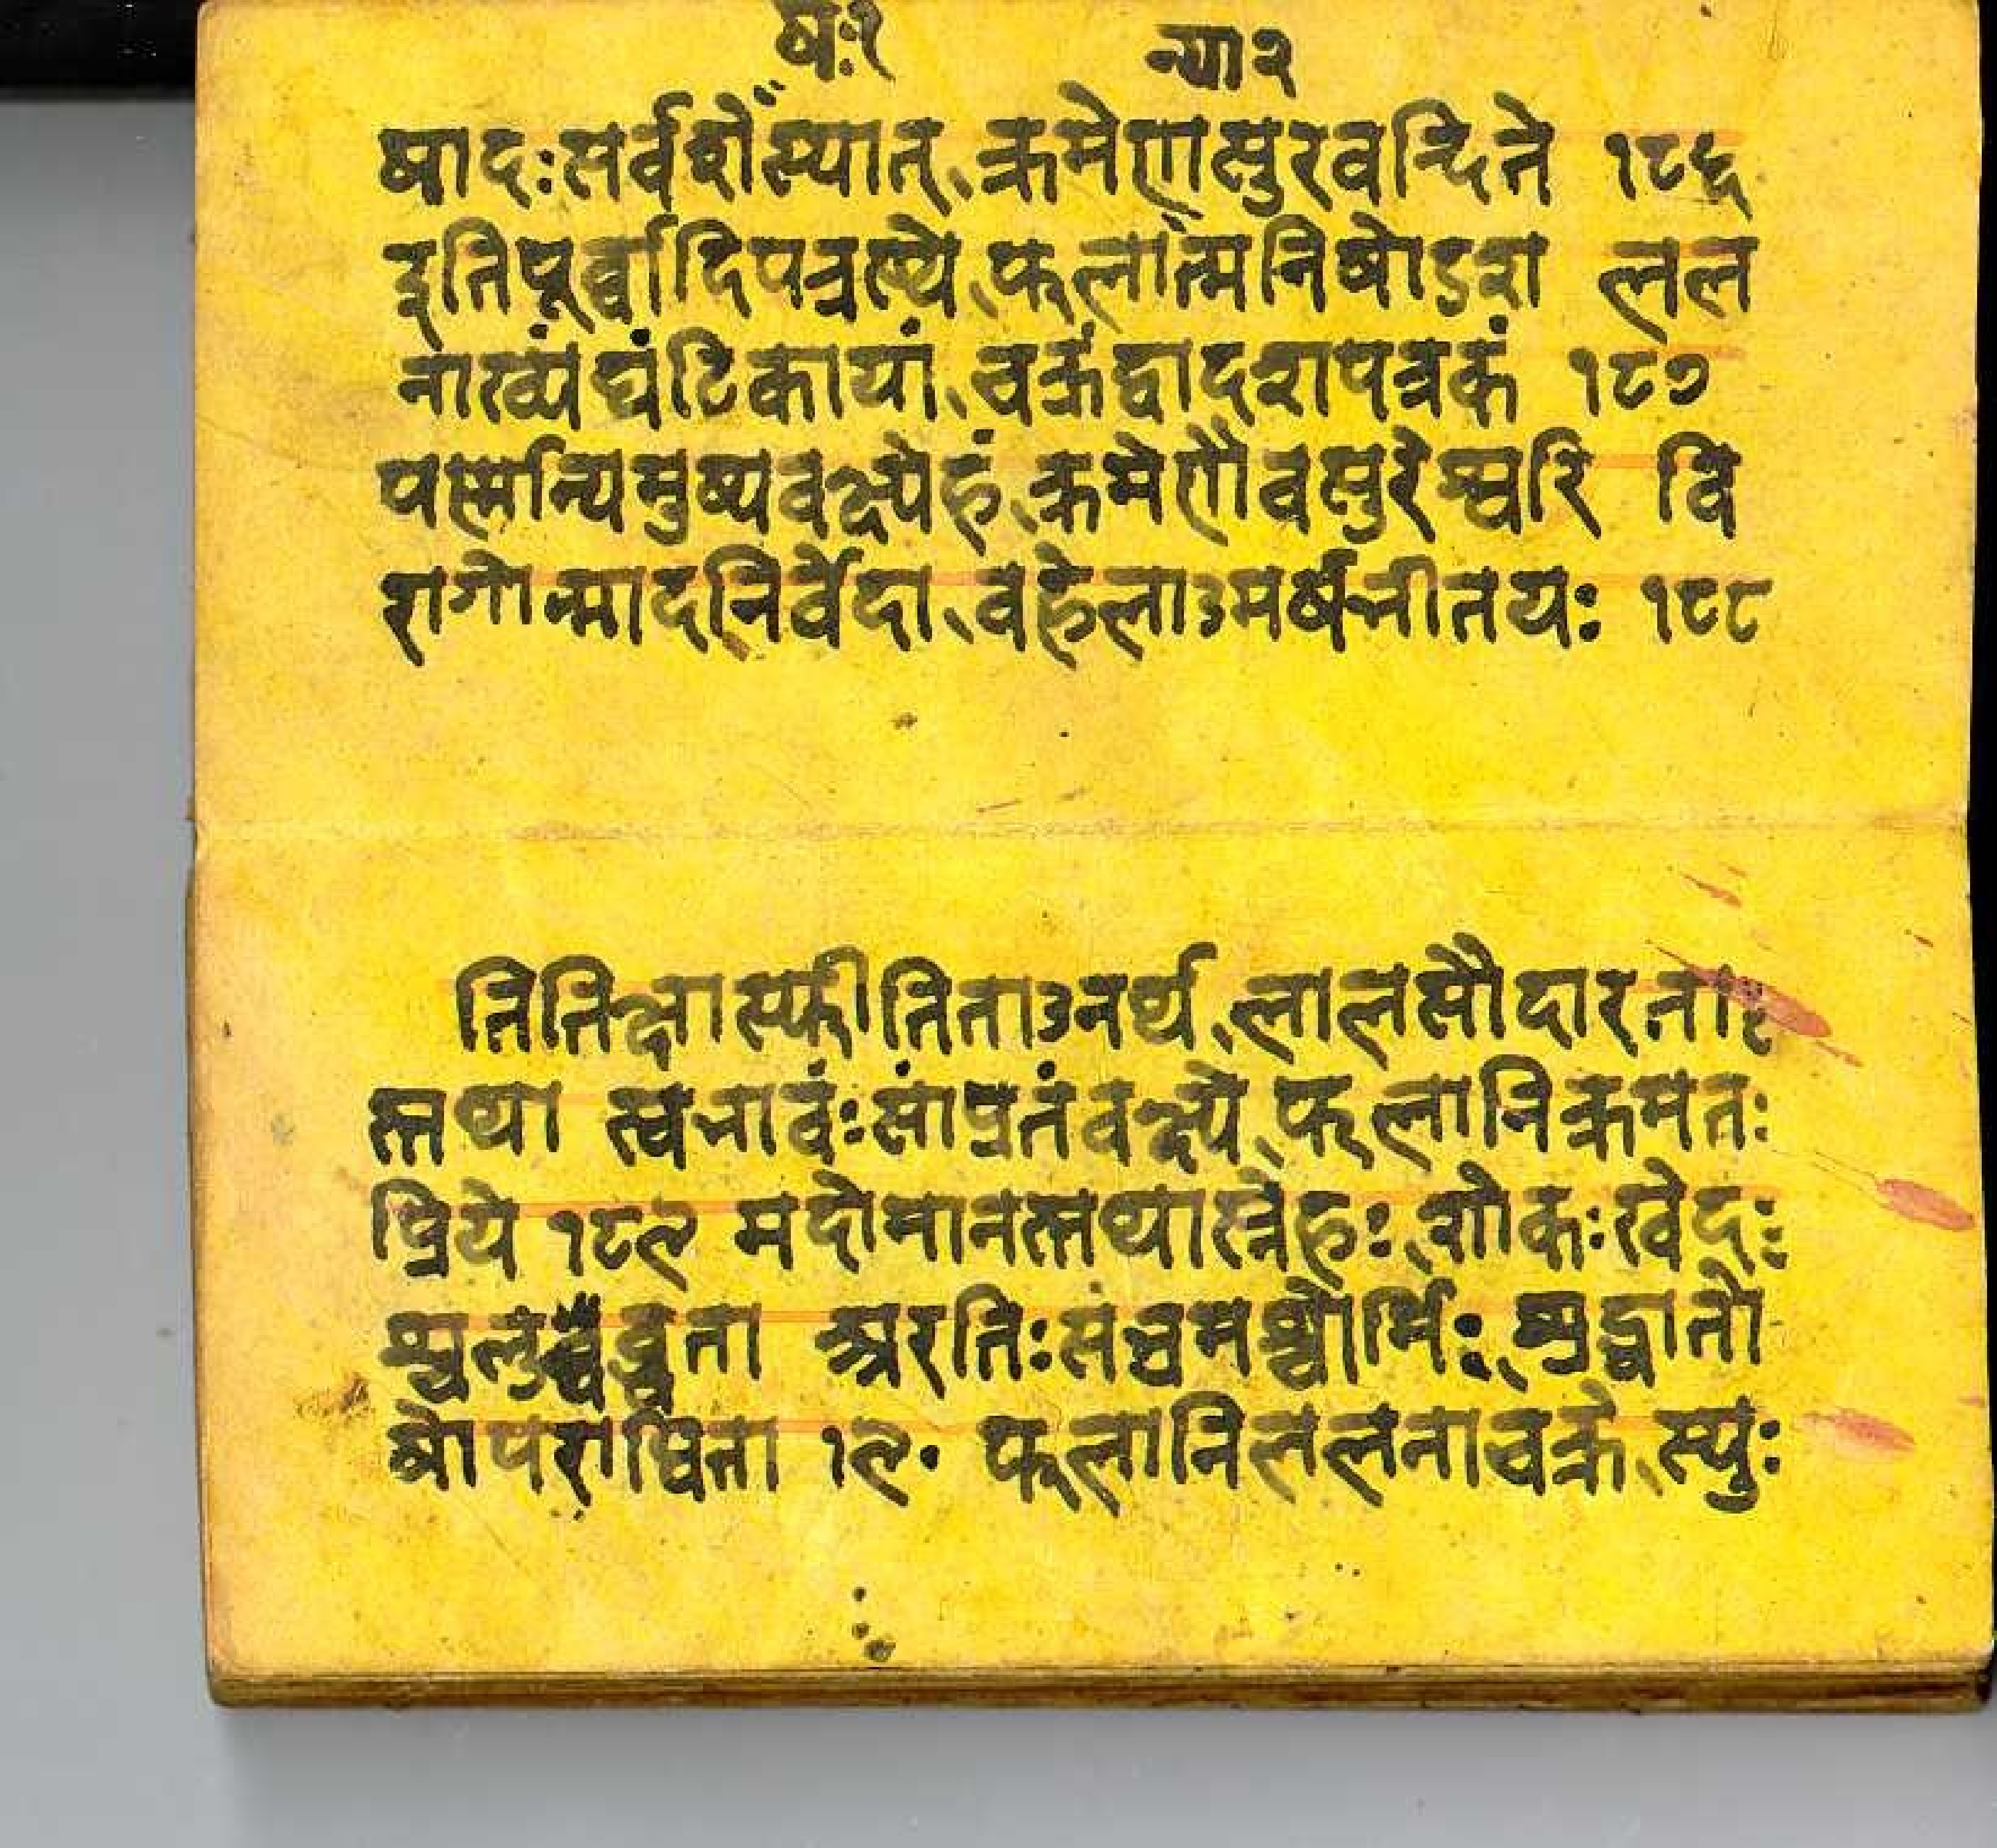 षः१ न्या२
षादःसर्वशैस्यात् क्रमेणासुरवन्दिते १८६
इतिपूर्वादिपत्रस्थे फलांत्मनिषोडश लल
नाख्यंघंटिकायां चक्रंद्वादशपत्रकं १८७
पत्रान्यिमुष्यवक्ष्येहं क्रमेणैवसुरेश्वरि वि
शगोन्मादनिर्वेदा वहेलाऽमर्षनीतयः १८८
तितिक्षास्फीतिताऽनर्थ लालसौदारता
स्तथा स्वभावंःसांप्रतंवक्ष्ये फलानिक्रमतः
प्रिये १८९ मदोमानस्तथास्नेहः शोकःखेदः
श्चलुब्धता अरतिःसंभ्रमश्चोर्मिः श्रुद्धातो
षोपराधिता १९० फलानिललनाचक्रे स्युः